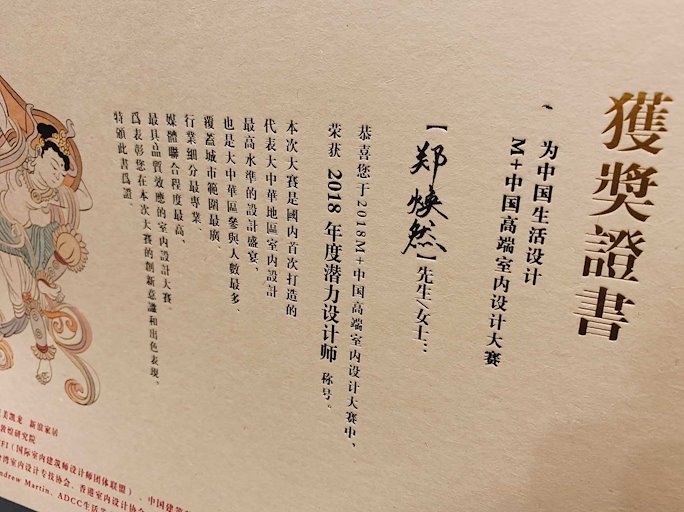 獲獎證書
为中国生活设计
M+中国高端室内设计大赛
【郑焕然】先生/女士：
恭喜您于2018M+中国高端室内设计大赛中、
荣获 2018 年度潜力设计师 称号。
本次大賽是國内首次打造的
代表大中華地區室内設計
最高水準的設計盛宴、
也是大中華區參與人數最多、
覆蓋城市範圍最廣、
行業細分最專業、
媒體聯合程度最高、
最具品質效應的室内設計大賽。
爲表彰您在本次大賽的創新意識和出色表現、
特頒此書爲證。
美凯龙 新浪家居
敦煌研究院
FI（国际室内建筑师设计师团体联盟）、中国建筑
湾室内设计专技协会、香港室内设计协会
ndrew Martin、ADCC生活